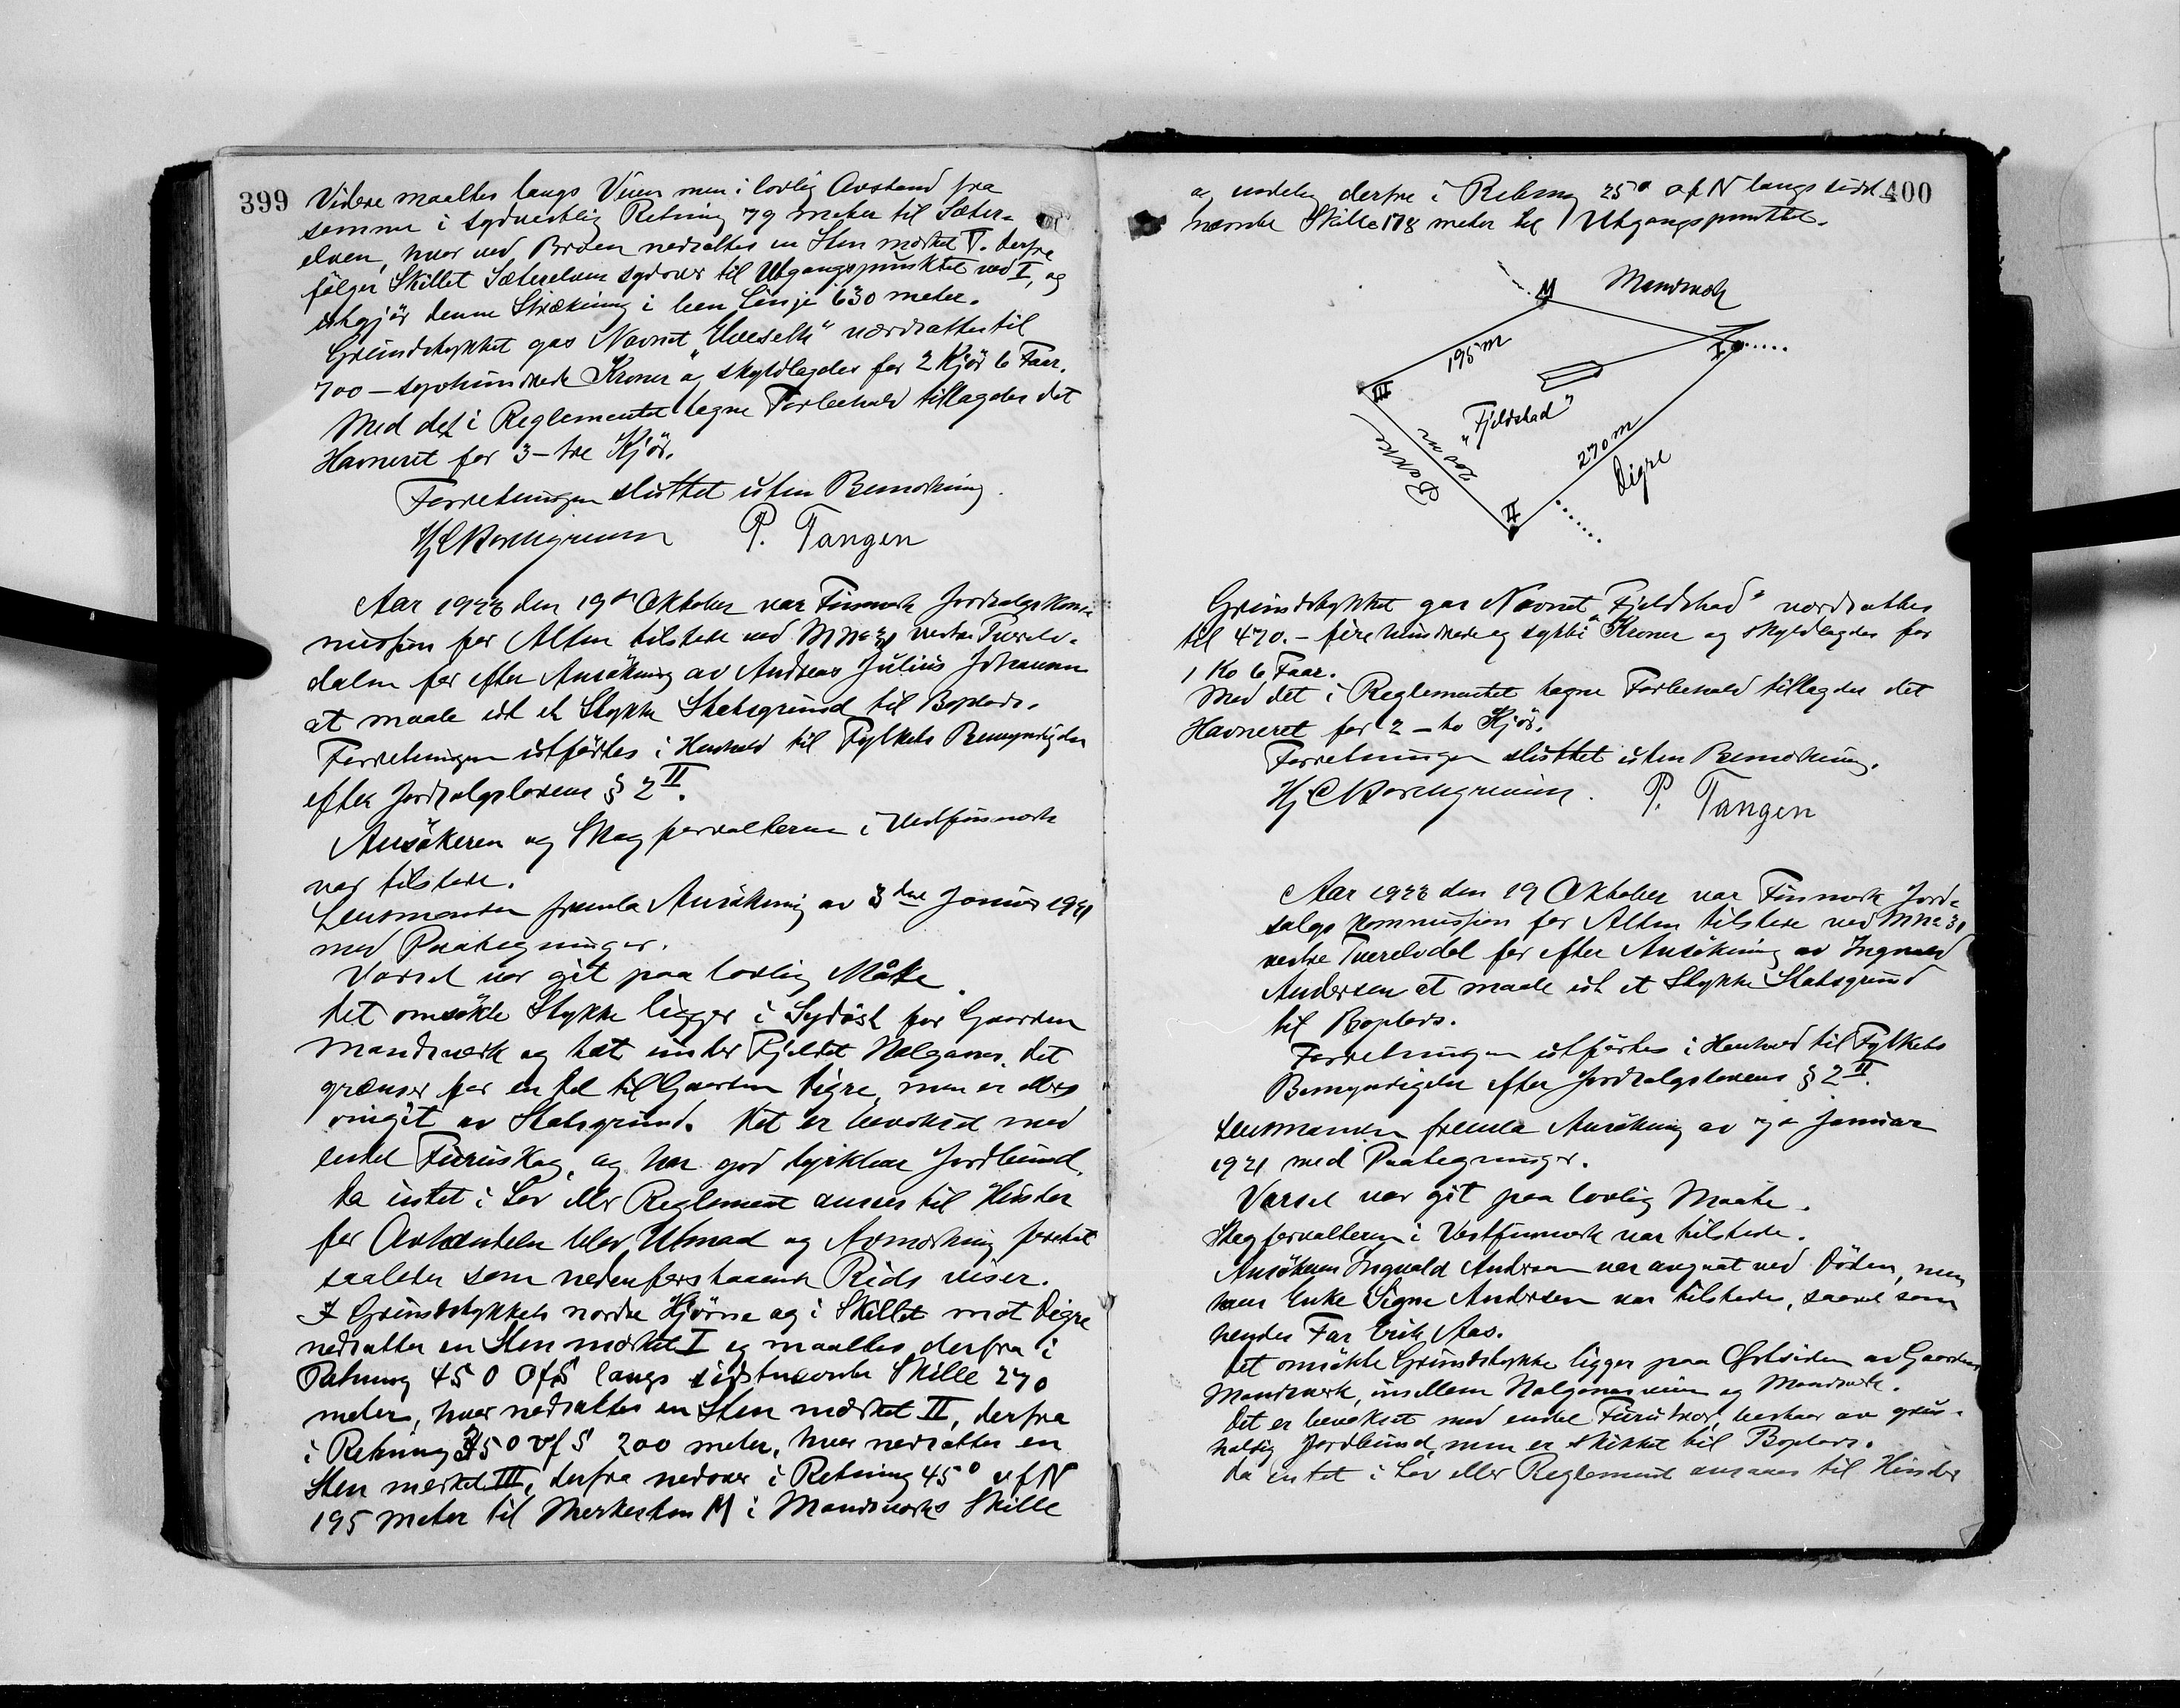 399
Videre maaltes langs Veien men i lovlig Avstand fra
samme i sydvestlig Retning 79 meter til Sæter-
elven, hvor ved Broen nedsattes en Sten mærket V. Derfra
følger Skillet Sæterelven sydover til Utgangspunktet ved I, og
utgjør denne Strækning i leen Linje 630 meter.
Grundstykket gas Navnet "Elveseth" værdsattes til
700 – syvhundrede Kroner og skyldlagdes for 2 Kjør 6 Faar.
Med det i Reglementet tagne Forbehold tillagdes det
Havneret for 3 – tre Kjør.
Forretningen sluttet uten Bemerkning.
P. Tangen
Aar 1922 den 19de Oktober var Finmark Jordsalgskom-
mission for Alten tilstede ved M No 31 vestre Tverelv-
dalen for efter Ansøkning av Andreas Julius Johansen
at maale ut et Stykke Statsgrund til Boplads.
Forretningen utførtes i Henhold til Fylkets Bemyndigelse
efter Jordsalgslovens § 2 II.
Ansøkeren og Skogforvalteren i Vestfinmark
var tilstede.
Lensmanden fremla Ansøkning av 3dne Januar 1921
med Paategninger.
Varsel var git paa lovlig Måtte.
Det omsøkte Stykke ligger i Sydøst for Gaarden
Mandsverk og tæt under Fjeldet Nalganas. Det
grænser for en Del til Gaarden Digre, men er ellers
omgit av Statsgrund. Det er bevokset med
endel Furuskog, og har god dyrkbar Jordbund.
Da intet i Lov eller Reglement ansees til Hinder
for Avhændelse blev Utmaal og Avmerkning foretat
saaledes som nedenforstaaende Rids viser.
I Grundstykkets nordre Hjørne og i Skillet mot Digre
nedsattes en Sten mærket I og maaltes derfra i
Retning 45 0 Ø f S langs sidstnævnte Skille 270
meter, hvor nedsattes en Sten mærket II, derfra
i Retning 35 0 V f S 200 meter, hvor nedsattes en
Sten mærket III, derfra nedover i Retning 45° v f N
195 meter til Merkesten M i Mandsverks Skille
400
og endelig derfra i Retning 25° ø f N langs sidst-
nævnte Skille 178 meter til Utgangspunktet.
M Mandsverk
I
195 m
III
"Fjeldstad"
200 m
270 m
Bakke
Digre
II
Grundstykket gas Navnet "Fjeldstad" værdsattes
til 470. – firehundrede og sytti Kroner og skyldlagdes for
1 Ko 6 Faar.
Med det i Reglementet tagne Forbehold tillagdes det
Havneret for 2 – to Kjør.
Forretningen sluttet uten Bemerkning.
P. Tangen
Aar 1922 den 19 Oktober var Finmark Jord-
salgskommission for Alten tilstede ved M No 31
vestre Tverelvdal for efter Ansøkning av Ingvald
Andersen at maale ut et Stykke Statsgrund
til Boplads.
Forretningen utførtes i Henhold til Fylkets
Bemyndigelse efter Jordsalgslovens § 2 II.
Lensmanden fremla Ansøkning av Januar
1921 med Paategninger.
Varsel var git paa lovlig Maate.
Skogforvalteren i Vestfinmark var tilstede.
Ansøkeren Ingvald Andersen var avgaat ved Døden, men
hans Enke Signe Andersen var tilstede, saavel som
hendes Far Erik Aas.
Det omsøkte Grundstykke ligger paa Østsiden av Gaarden
Mandsverk, imellem Nalganasveien og Mandsverk.
Det er bevokset med endel Furutrær, bestaar av grus-
holdig Jordbund, men er skikket til Boplads.
Da intet i Lov eller Reglement ansaaes til Hinder